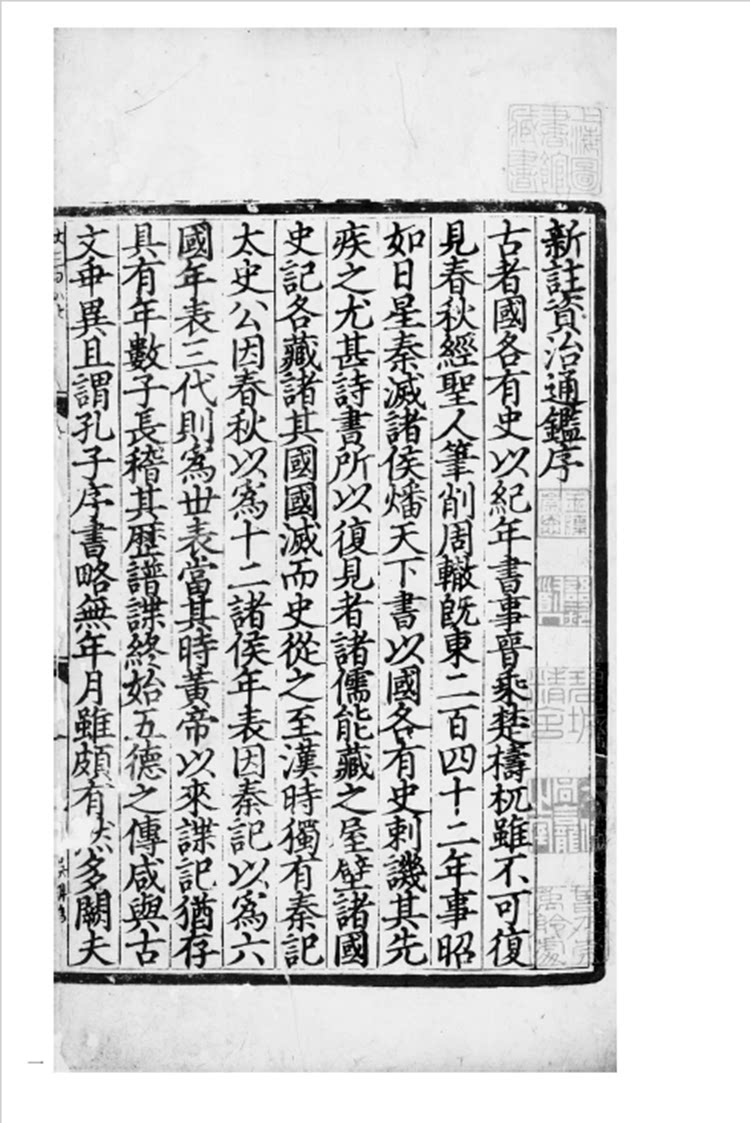 新註資治通鑑序
古者國各有史以紀年書事晉乘楚檮杌雖不可復
見春秋經聖人筆削周轍旣東二百四十二年事昭
如日星秦滅諸侯燔天下書以國各有史刺譏其先
疾之尤甚詩書所以復見者諸儒能藏之屋壁諸國
史記各藏諸其國國滅而史從之至漢時獨有秦記
太史公因春秋以爲十二諸侯年表因秦記以爲六
國年表三代則爲世表當其時黃帝以來諜記猶存
具有年數子長稽其歷譜諜終始五德之傳咸與古
文乖異且謂孔子序書略無年月雖頗有然多闕夫
上海圖書館藏書
一